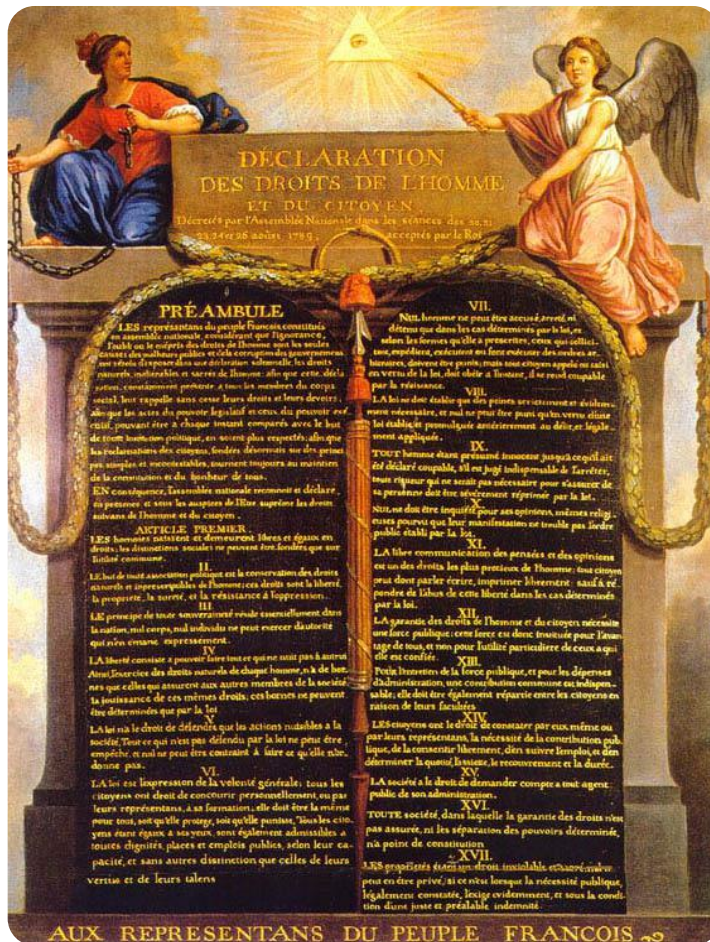 DÉCLARATION
DES DROITS DE L'HOMME
ET DU CITOYEN,
Décretés par l'Assemblée Nationale dans les séances des 20, 21
23, 24 et 26 aoust 1789, acceptés par le Roi
PRÉAMBULE
LES représentans du peuple François, constitués
en assemblée nationale, considérant que l'ignorance,
l'oubli ou le mépris des droits de l'homme sont les seules
causes des malheurs publics et de la corruption des gouvernemens
ont résolu d'exposer dans une déclaration solemnelle, les droits
naturels, inaliénables et sacrés de l'homme; afin que cette décla
ration, constamment présente a tous les membres du corps
social, leur rappelle sans cesse leurs droits et leurs devoirs;
afin que les actes du pouvoir législatif et ceux du pouvoir exé
cutif, pouvant être à chaque instant comparés avec le but
de toute institution politique, en soient plus respectés; afin que
les réclamations des citoyens, fondées désormais sur des princi
pes simples et incontestables, tournent toujours au maintien
de la constitution et du bonheur de tous.
EN conséquence, l'assemblée nationale reconnoit et déclare,
en présence et sous les auspices de l'Etre suprême les droits
suivans de l'homme et du citoyen.
ARTICLE PREMIER.
LES hommes naissent et demeurent libres et égaux en
droits; les distinctions sociales ne peuvent être fondées que sur
l'utilité commune.
II.
LE but de toute association politique est la conservation des droits
naturels et imprescriptibles de l'homme; ces droits sont la liberté,
la propriété, la sureté, et la résistance à l'oppression.
III
LE principe de toute souveraineté réside essentiellement dans
la nation, nul corps, nul individu ne peut exercer d'autorité
qui n'en émane expressément.
IV
LA liberté consiste a pouvoir faire tout ce qui ne nuit pas à autrui
Ainsi, l'exercice des droits naturels de chaque homme, n'a de bor,
nes que celles qui assurent aux autres membres de la société
la jouissance de ces mêmes droits; ces bornes ne peuvent
être déterminées que par la loi
V
LA loi n'a le droit de défendre que les actions nuisibles a la
société. Tout ce qui n'est pas défendu par la loi ne peut être
empêché, et nul ne peut être contraint à faire ce qu'elle n'or,
donne pas.
VI.
LA loi est l'expression de la volonté générale; tous les
citoyens ont droit de concourir personnellement, ou par
leurs représentans, à sa formation; elle doit être la même
pour tous, soit qu'elle protege, soit qu'elle punisse. Tous les cito
yens étant égaux à ses yeux, sont également admissibles a
toutes dignités, places et emplois publics, selon leur ca,
pacité, et sans autres distinction que celles de leurs
vertus et de leurs talens
VII.
NUL homme ne peut être accusé, arreté, ni
détenu que dans les cas déterminés par la loi, et
selon les formes qu'elle a prescrites, ceux qui sollici,
tent, expédient, exécutent ou font exécuter des ordres ar,
bitraires, doivent être punis; mais tout citoyen appelé ou saisi
en vertu de la loi, doit obéir a l'instant, il se rend coupable
par la résistance.
VIII.
LA loi ne doit établir que des peines strictement et évidem
ment nécessaire, et nul ne peut être puni qu'en vertu d'une
loi établie et promulguée antérieurement au délit, et légale,
ment appliquée.
IX.
TOUT homme étant présumé innocent jusqu'a ce qu'il ait
été déclaré coupable, s'il est jugé indispensable de l'arrêter,
toute rigueur qui ne serait pas nécessaire pour s'assurer de
sa personne doit être sévèrement réprimée par la loi.
X.
NUL ne doit être inquiété pour ses opinions, mêmes religi,
euses pourvu que leur manifestation ne trouble pas l'ordre
public établi par la loi.
XI.
LA libre communication des pensées et des opinions
est un des droits les plus precieux de l'homme: tout citoyen
peut dont parler écrire, imprimer librement: sauf à ré,
pondre de l'abus de cette liberté dans les cas déterminés
par la loi.
XII.
LA garantie des droits de l'homme et du citoyen nécessite
une force publique: cette force est donc instituée pour l'avan
tage de tous, et non pour l'utilité particuliere de ceux a qui
elle est confiée.
XIII.
POUR l'entretien de la force publique, et pour les dépenses
d'administration, une contribution commune est indispen,
sable; elle doit être également répartie entre les citoyens en
raison de leurs facultées
XIV.
LES citoyens ont le droit de constater par eux même ou
par leurs représentans, la nécessité de la contribution pub,
lique, de la consentir librement, d'en suivre l'emploi, et d'en
déterminer la quotité, l'assiete, le recouvrement et la durée.
XV.
LA société a le droit de demander compte a tout agent
public de son administration.
XVI.
TOUTE société, dans laquelle la garantie des droits n'est
pas assurée, ni les séparation des pouvoirs déterminée,
n'a point de constitution
XVII.
LES propriétés étant un droit inviolable et sacré, nul ne
peut en être privé, si ce n'est lorsque la nécessité publique,
légalement constatée, l'exige évidemment, et sous la condi
tion d'une juste et préalable indemnité
AUX REPRESENTANS DU PEUPLE FRANCOIS